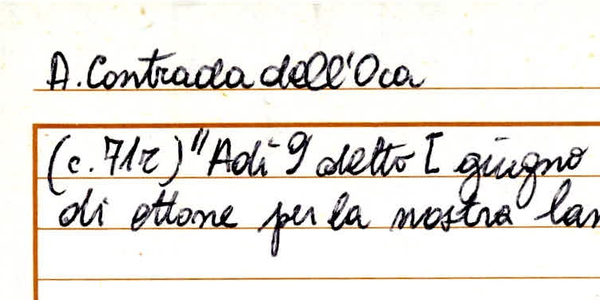 A. Contrada dell'Oca
(c. 71r) "Adi 9 detto [ giugno
di ottone per la nostra lam